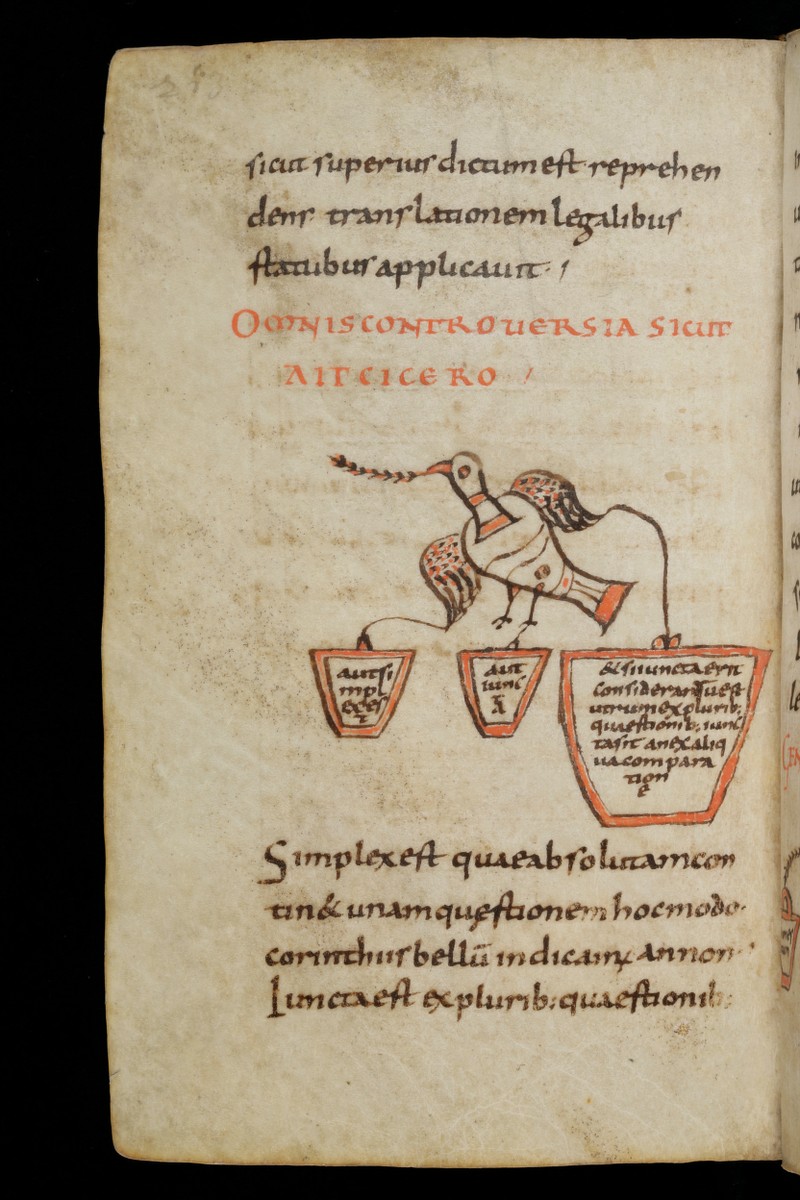 sicut superius dictum est reprehen
dens translationem legalibus
statubus applicauit
OMNIS CONTROUERSIA SICUT
AIT CICERO
aut si
mpl
ex es
t
aut
iunc
ta
& si iuncta erit
considerandu est
utrum ex plurib;
quaestionib; iunc
ta sit an ex aliq
ua compara
tion
e
Simplex est quae absolutam con
tin& unam quęstionem hoc modo
corinthiis bellū indicamus an non
Iuncta est ex plurib; quaestionib;